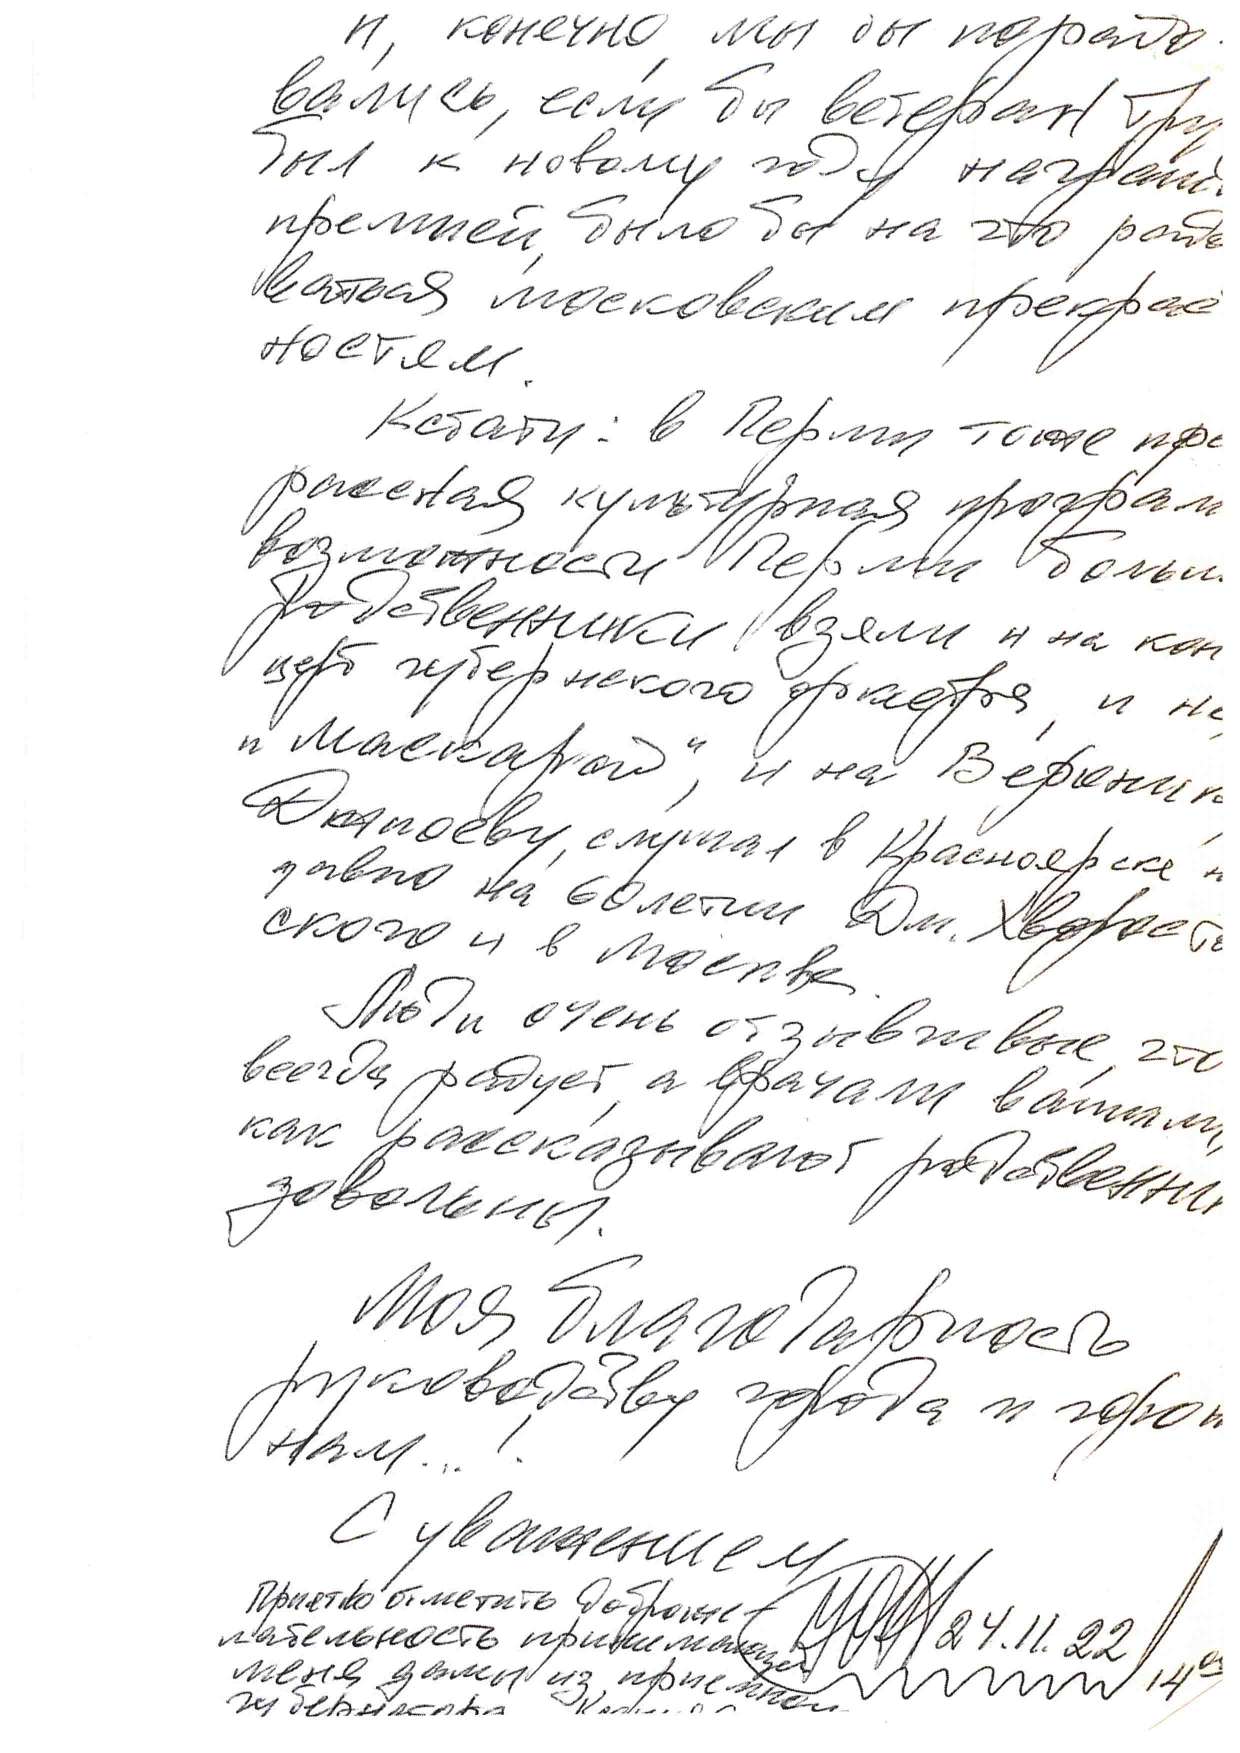 И, конечно, мы бы порадо-
вались, если бы ветеран тру
был к новому году награжд
премией, было бы на что радо
ваться московским прекрас
ностям.
Кстати: в Перми тоже прек
расная культурная програм
возможности Перми больш
Родственники взяли и на кон
церт губернского оркестра, и на
"Маскарад", и на Вероник
Джиоеву, слушал в Красноярске н
давно на 60летии Дм. Хворосто
ского и в Москве.
Люди очень отзывчивые, это
всегда радует, а врачами вашими,
как рассказывают родственни
довольны.
Моя благодарность
руководству города и горожа
нам...!
С уважением
24.11.22
14 00
Приятно отметить доброже-
лательность принимающей
меня дамы из приемной
губернатора